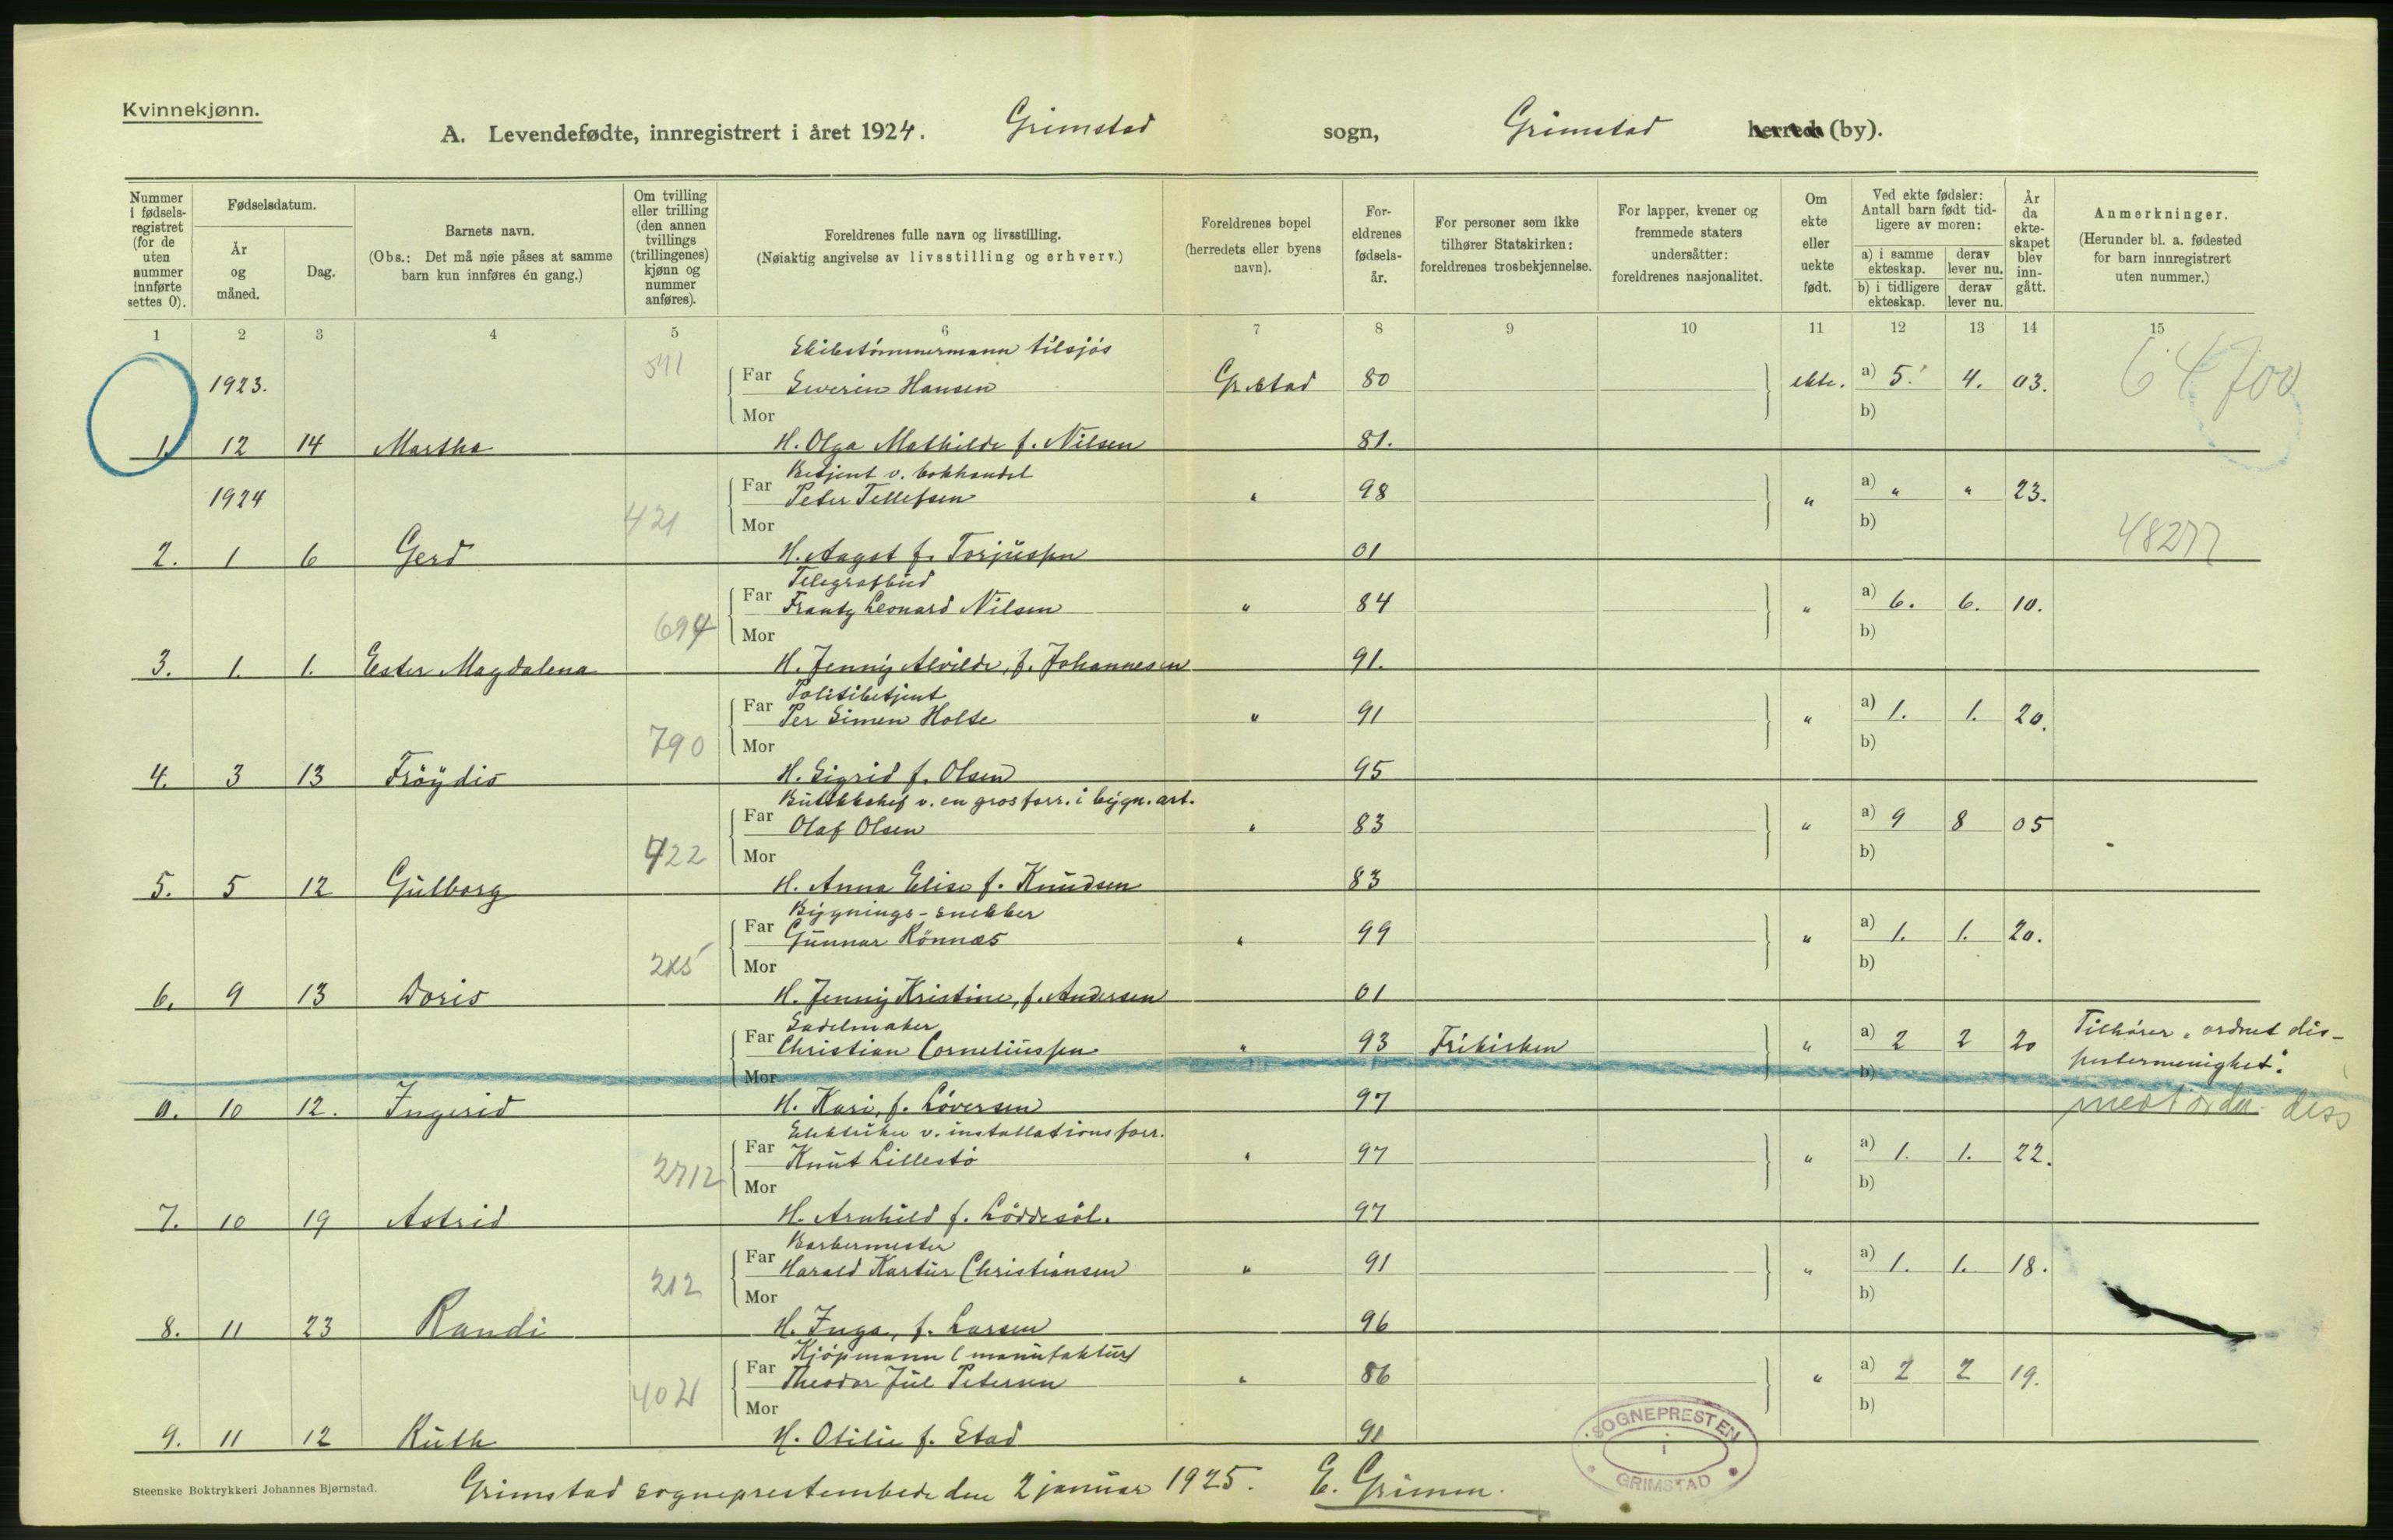 Kvinnekjønn.
A. Levendefødte, innregistrert i året 1924. Grimstad sogn, Grimstad herred (by).
Nummer i fødsels-registret (for de uten nummer innførte settes 0).
Fødselsdatum.
År og måned.
Dag.
Barnets navn.
(Obs.: Det må nøie påses at samme barn kun innføres én gang.)
Om tvilling eller trilling (den annen tvillings (trillingenes) kjønn og nummer anføres).
Foreldrenes fulle navn og livsstilling.
(Nøiaktig angivelse av livsstilling og erhverv.)
Foreldrenes bopel (herredets eller byens navn).
For-eldrenes fødsels-år.
For personer som ikke tilhører Statskirken: foreldrenes trosbekjennelse.
For lapper, kvener og fremmede staters undersåtter: foreldrenes nasjonalitet.
Om ekte eller uekte født.
Ved ekte fødsler: Antall barn født tid-ligere av moren:
a) i samme ekteskap. derav lever nu.
b) i tidligere ekteskap. derav lever nu.
År da ekte-skapet blev inn-gått.
Anmerkninger.
(Herunder bl. a. fødested for barn innregistrert uten nummer.)
1 2 3 4 5 6 7 8 9 10 11 12 13 14 15
Skibstömmermann tilsjös
1923. 541 Far Severin Hansen Gr.stad 80 ekte. a) 5. 4. 03.
Mor b)
1. 12 14 Martha H. Olga Mathilde f. Nilsen 81.
Betjent v. bokhandel
1924 421 Far Peter Tellefsen " 98 " a) " " 23.
Mor b) 48277
2. 1 6 Gerd H. Aagot f. Torjussen 01
Telegrafbud
694 Far Frantz Leonard Nilsen " 84 " a) 6. 6. 10.
Mor b)
3. 1. 1. Ester Magdalena H. Jenny Alvilde, f. Johannesen 91.
Politibetjent
790 Far Per Simen Holte " 91 " a) 1. 1. 20.
Mor b)
4. 3 13 Fröydis H. Sigrid f. Olsen 95
Butikkchef v. en gros forr. i bygn. art.
422 Far Olaf Olsen " 83 " a) 9 8 05
Mor b)
5. 5 12 Gulborg H. Anna Elise f. Knudsen 83
Bygnings-snekker
Far Gunnar Rönnes " 99 " a) 1. 1. 20.
Mor b)
6. 9 13 Doris H. Jenny Kristine, f. Andersen 01
Sadelmaker
Far Christian Corneliussen " 93 Frikirken " a) 2 2 20 Tilhörer "ordnet dis-
Mor b) sentermenighet".
0. 10 12. Ingerid H. Kari, f. Löversen 97
Elektriker v. installationsforr.
2712 Far Knut Lillestö " 97 " a) 1. 1. 22.
Mor b)
7. 10 19 Astrid H. Arnhild f. Löddesöl. 97
Barbermester
212 Far Harald Kartur Christiansen " 91 " a) 1. 1. 18.
Mor b)
8. 11 23 Randi H. Inga, f. Larsen 96
Kjöpmann (manufaktur)
Far Theodor Jul Petersen " 86 " a) 2 2 19.
Mor b)
9. 11 12 Ruth H. Otilie f. Stad 91
SOGNEPRESTEN i GRIMSTAD
Steenske Boktrykkeri Johannes Bjørnstad.
Grimstad sogneprestembede den 2 januar 1925. E. Grimm.